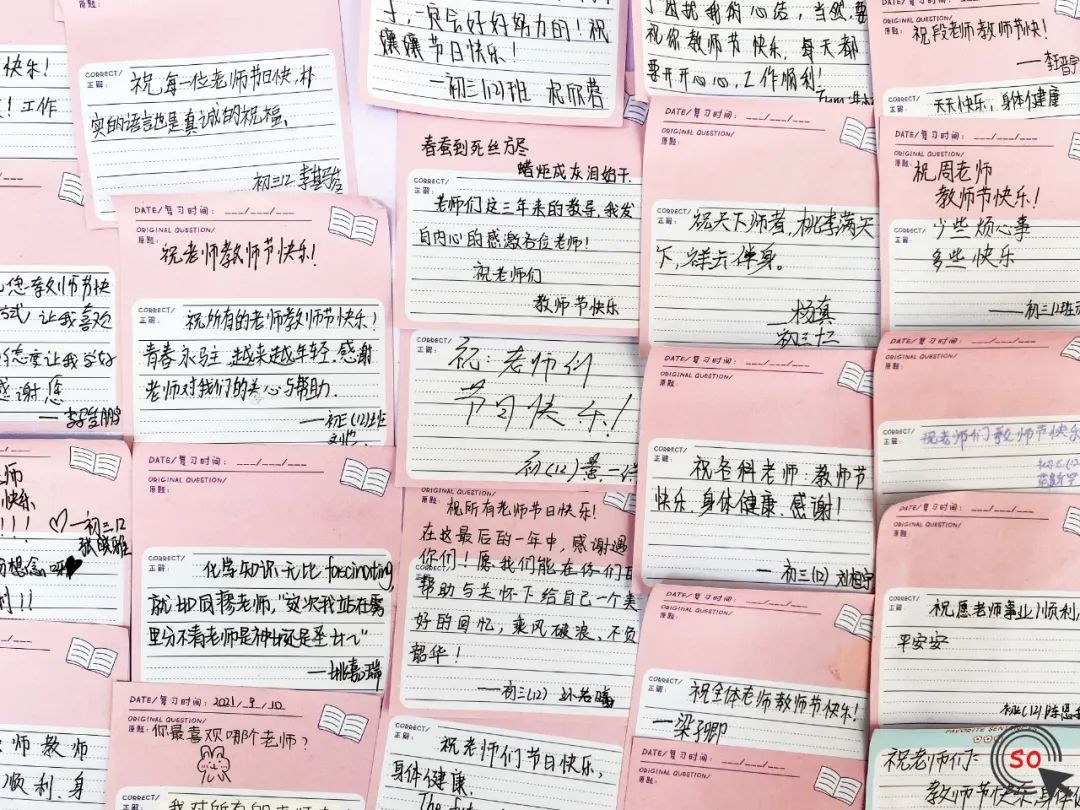 快乐！
！工作
原题：
CORRECT/
正解：
祝每一位老师节日快，朴
实的语言也是真诚的祝福、
初三12
DATE/复习时间：
ORIGINAL QUESTION/
原题：
祝老师教师节快乐！
CORRECT/
正解：
祝所有的老师教师节快乐！
青春永驻 越来越年轻.感谢
老师对我们的关心与帮助.
您教师节快
让我喜欢
让我学好
感谢您
快乐
！！！
♡一初三12
DATE/复习时间：
ORIGINAL QUESTION/
原题：
CORRECT/
正解：
化学知识无比 fascinating
就如同老师，“这次我站在雾
里分不清老师是神还是圣
师教师
顺利.身
DATE/复习时间：2021/9/10
ORIGINAL QUESTION/
原题：
你最喜欢哪个老师？
CORRECT/
正解：
我对所有的老师
好好努力的！祝
节日快乐！
—初三(12)班 祝欣蓉
春蚕到死丝方尽
蜡炬成灰泪始干.
CORRECT/
正解：
老师们这三年来的教导，我发
自内心的感激各位老师！
祝老师们
教师节快乐
CORRECT/
正解：
祝：老师们
节日快乐！
初(12)黄一
ORIGINAL QUESTION/
原题：
祝所有老师节日快乐！
在这最后的一年中，感谢遇
你们！愿我们能在你们
CORRECT/
正解：
帮助与关怀下给自己一个美
好的回忆，乘风破浪、不负
韶华！
—初三(12)
CORRECT/
正解：
祝老师们节日快乐，
身体健康.
我的心结，当然，要
祝你教师节快乐，每天都
要开开心心，工作顺利！
DATE/复习时间：
ORIGINAL QUESTION/
原题：
CORRECT/
正解：
祝天下师者，桃李满天
下，祥云伴身。
杨真
初三十二
DATE/复习时间：
ORIGINAL QUESTION/
原题：
CORRECT/
正解：
祝各科老师：教师节
快乐.身体健康.感谢！
—初三(12)
DATE/复习时间：
ORIGINAL QUESTION/
原题：
CORRECT/
正解：
祝全体老师教师节快乐！
DATE/复习时间：
ORIGINAL QUESTION/
原题：
ORIGINAL QUESTION/
原题：
祝段老师教师节快！
CORRECT/
正解：
天天快乐，身体健康
DATE/复习时间：
ORIGINAL QUESTION/
原题：
祝周老师
教师节快乐！
CORRECT/
正解：
少些烦心事
多些快乐
DATE/复习时间：
ORIGINAL QUESTION/
原题：
CORRECT/
正解：
祝老师们教师节快乐
DATE/复习时间：
ORIGINAL QUESTION/
原题：
CORRECT/
正解：
祝愿老师事业顺利，
平安安
祝老师们：
教师节快乐
SO